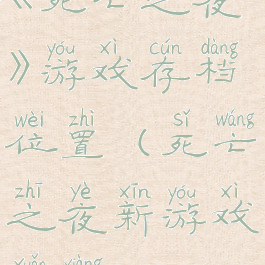 《死亡之夜
yóu xì cún dàng
》游戏存档
wèi zhì sǐ wáng
位置（死亡
zhī yè xīn yóu xì
之夜新游戏
xuǎn xiàng